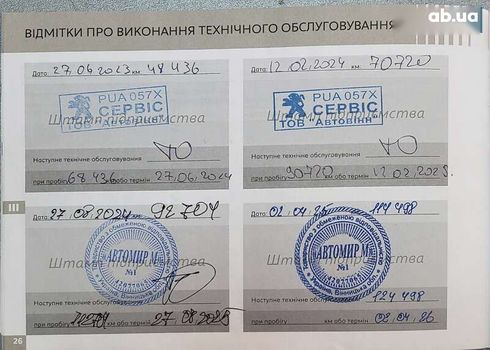 ab.ua
ВІДМІТКИ ПРО ВИКОНАННЯ ТЕХНІЧНОГО ОБСЛУГОВУВАННЯ
Дата: 27.06.2023 км: 48 436
PUA 057X
СЕРВІС
ТОВ "Автовінн"
Штамп підприємства
ТО
Наступне технічне обслуговування
при пробігу 68 436 км або термін 27.06.2024
Дата: 12.02.2024 км: 70720
PUA 057X
СЕРВІС
ТОВ "Автовінн"
Штамп підприємства
ТО
Наступне технічне обслуговування
при пробігу 90720 км або термін 12.02.2025
III
Дата: 27.08.2024 92704
АВТОМИР М
№1
Штамп підприємства
Наступне технічне обслуговування
при пробігу км або термін 27 08 2025
Дата: 02.04.25 114 498
АВТОМИР М
№1
Штамп підприємства
Наступне технічне обслуговування
124 498
при пробігу км або термін 02.04.26
26